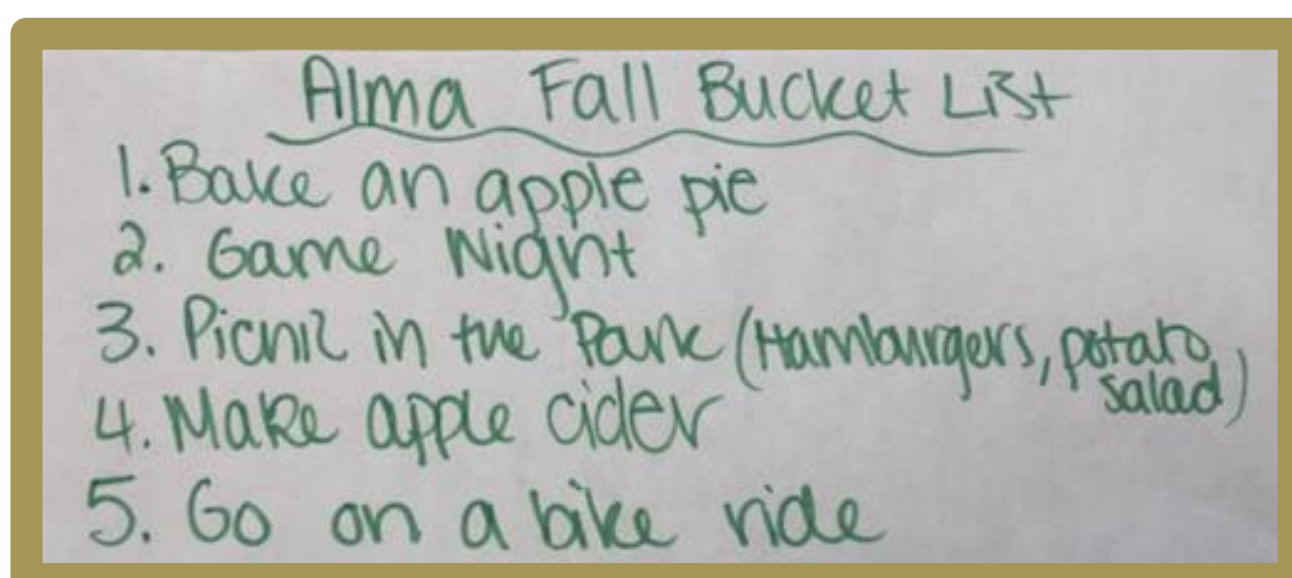 Alma Fall Bucket List
1. Bake an apple pie
2. Game Night
3. Picnic in the Park (Hamburgers, potato
salad)
4. Make apple cider
5. Go on a bike ride